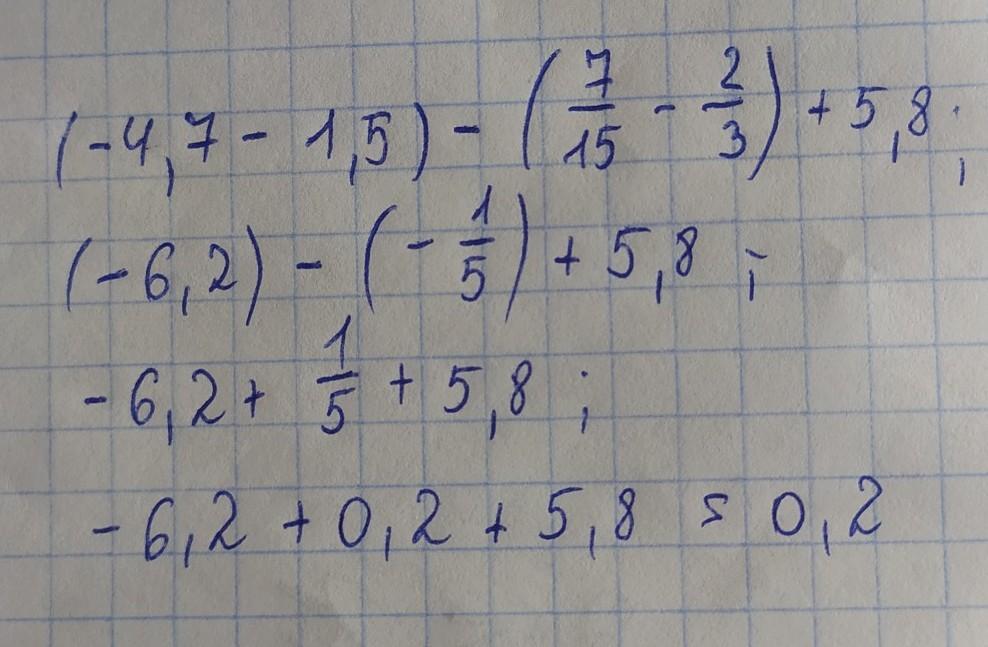 (-4,7 - 1,5) - (7/15 - 2/3) + 5,8 ;
(-6,2) - (-1/5) + 5,8 ;
-6,2 + 1/5 + 5,8 ;
-6,2 + 0,2 + 5,8 = 0,2